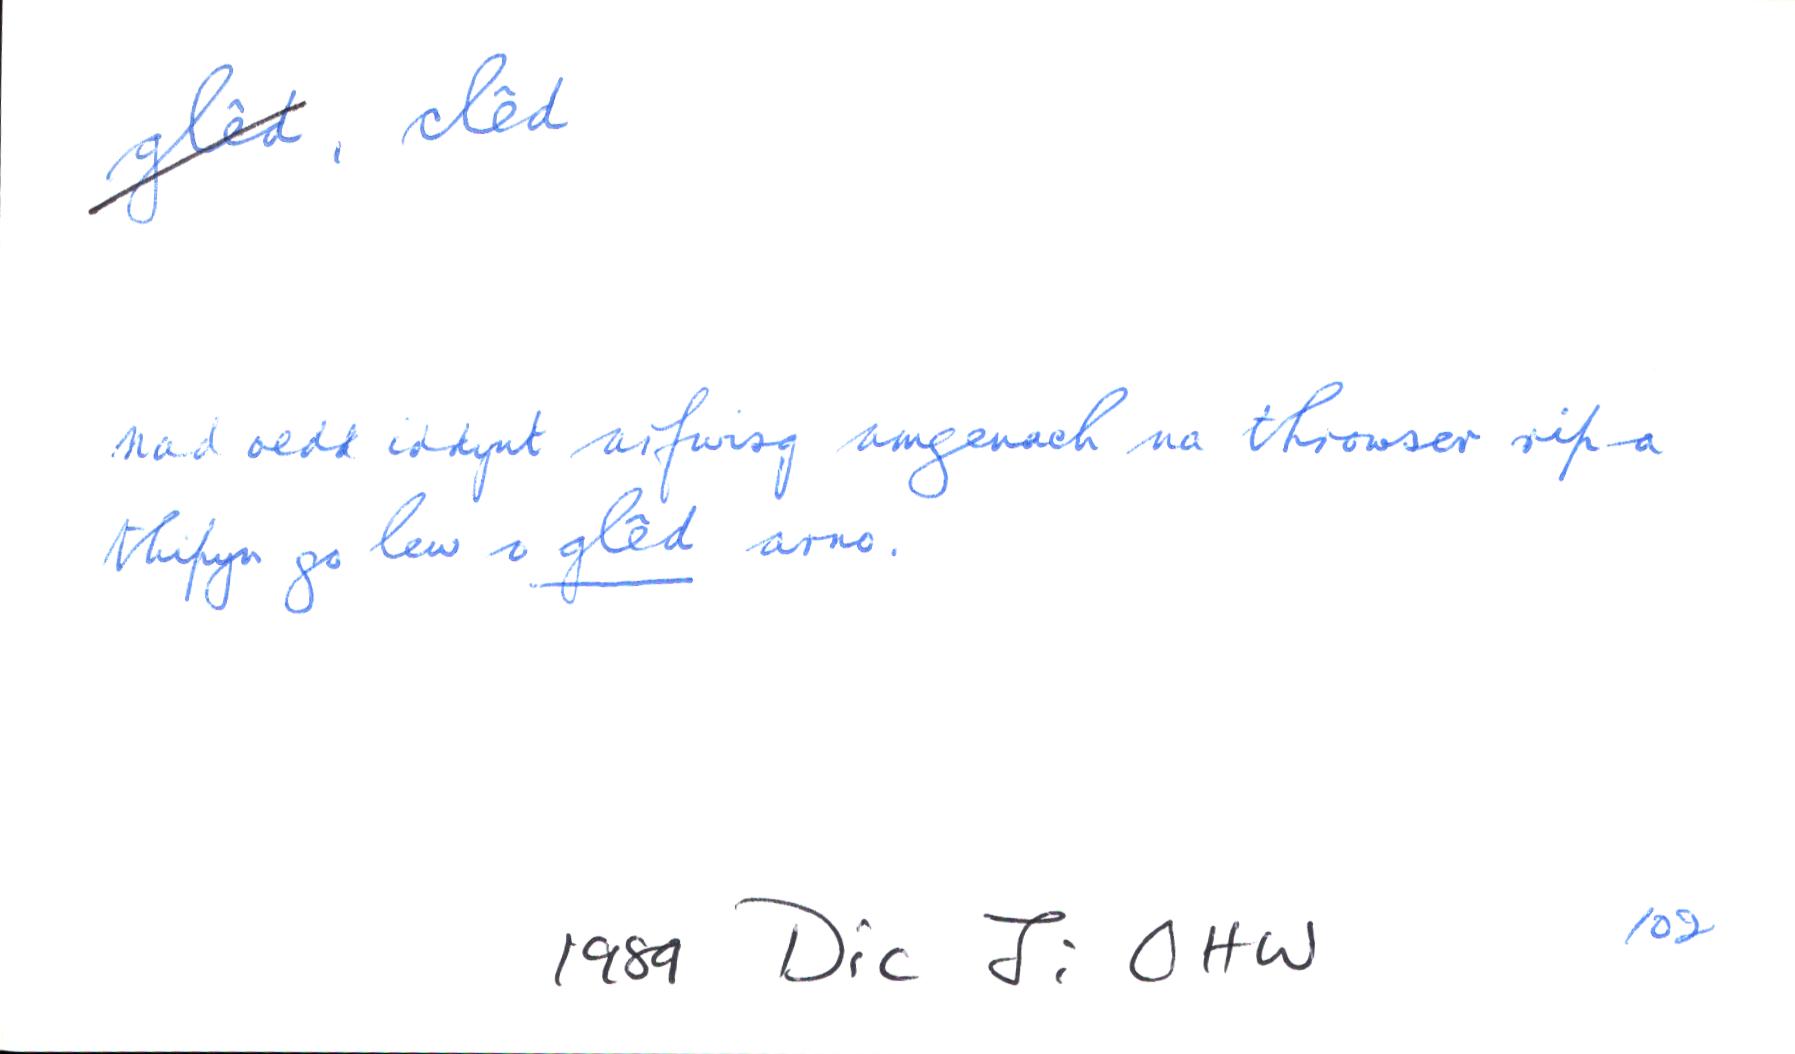 glêd, clêd
nad oedd iddynt arfwisg amgenach na throwser rip-a
thipyn go lew o glêd arno.
1989 Dic J: OHW 102